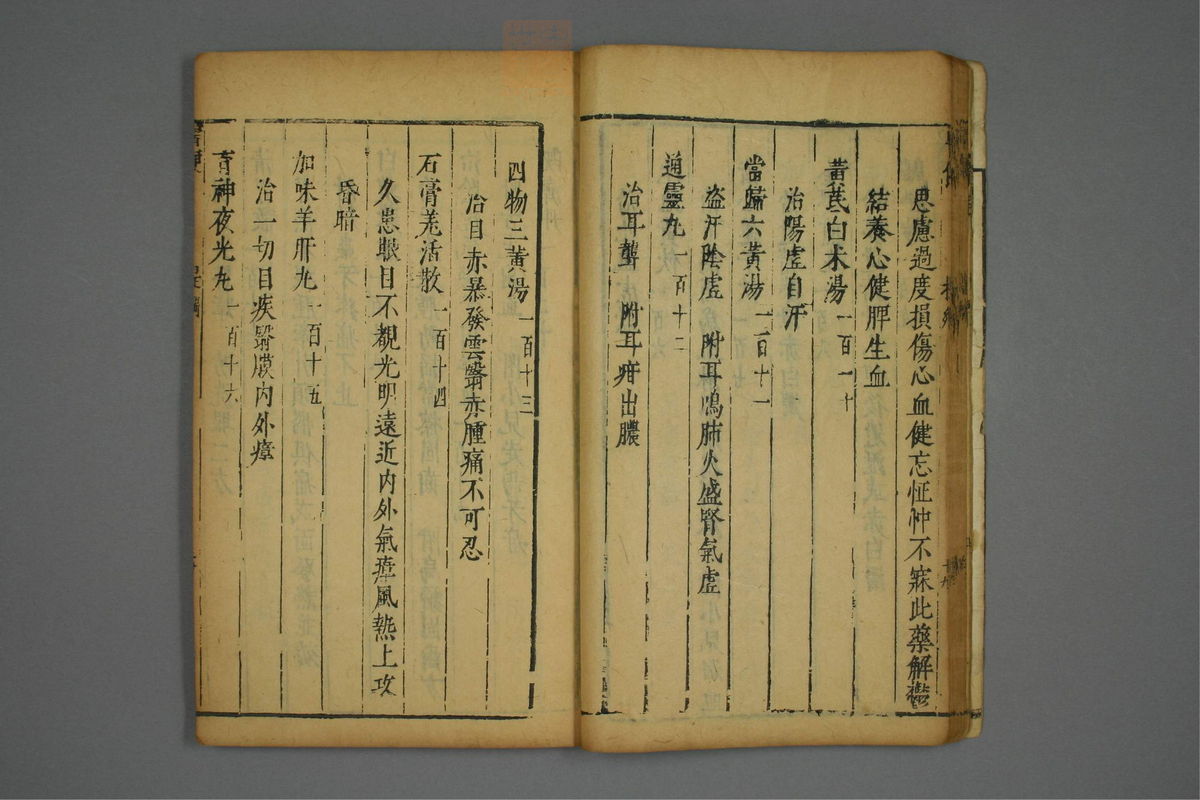 思慮過度損傷心血健忘怔忡不寐此藥解鬱
結養心健脾生血
黃芪白朮湯 一百一十
治陽虛自汗
當歸六黃湯 一百十一
盜汗陰虛 附耳鳴肺火盛腎氣虛
通靈丸 一百十二
治耳聾 附耳疳出膿
四物三黃湯 一百十三
治目赤暴發雲翳赤腫痛不可忍
石膏羌活散 一百十四
久患眼目不覩光明遠近內外氣瘴風熱上攻
昏暗
加味羊肝丸 一百十五
治一切目疾翳膜內外瘴
育神夜光丸 一百十六